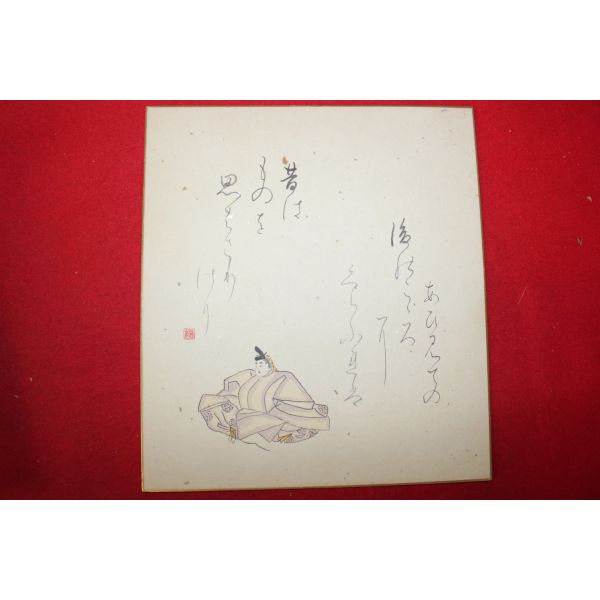 あひ見ての
後のこゝろ
に
くらふれは
昔は
ものを
思はさり
けり